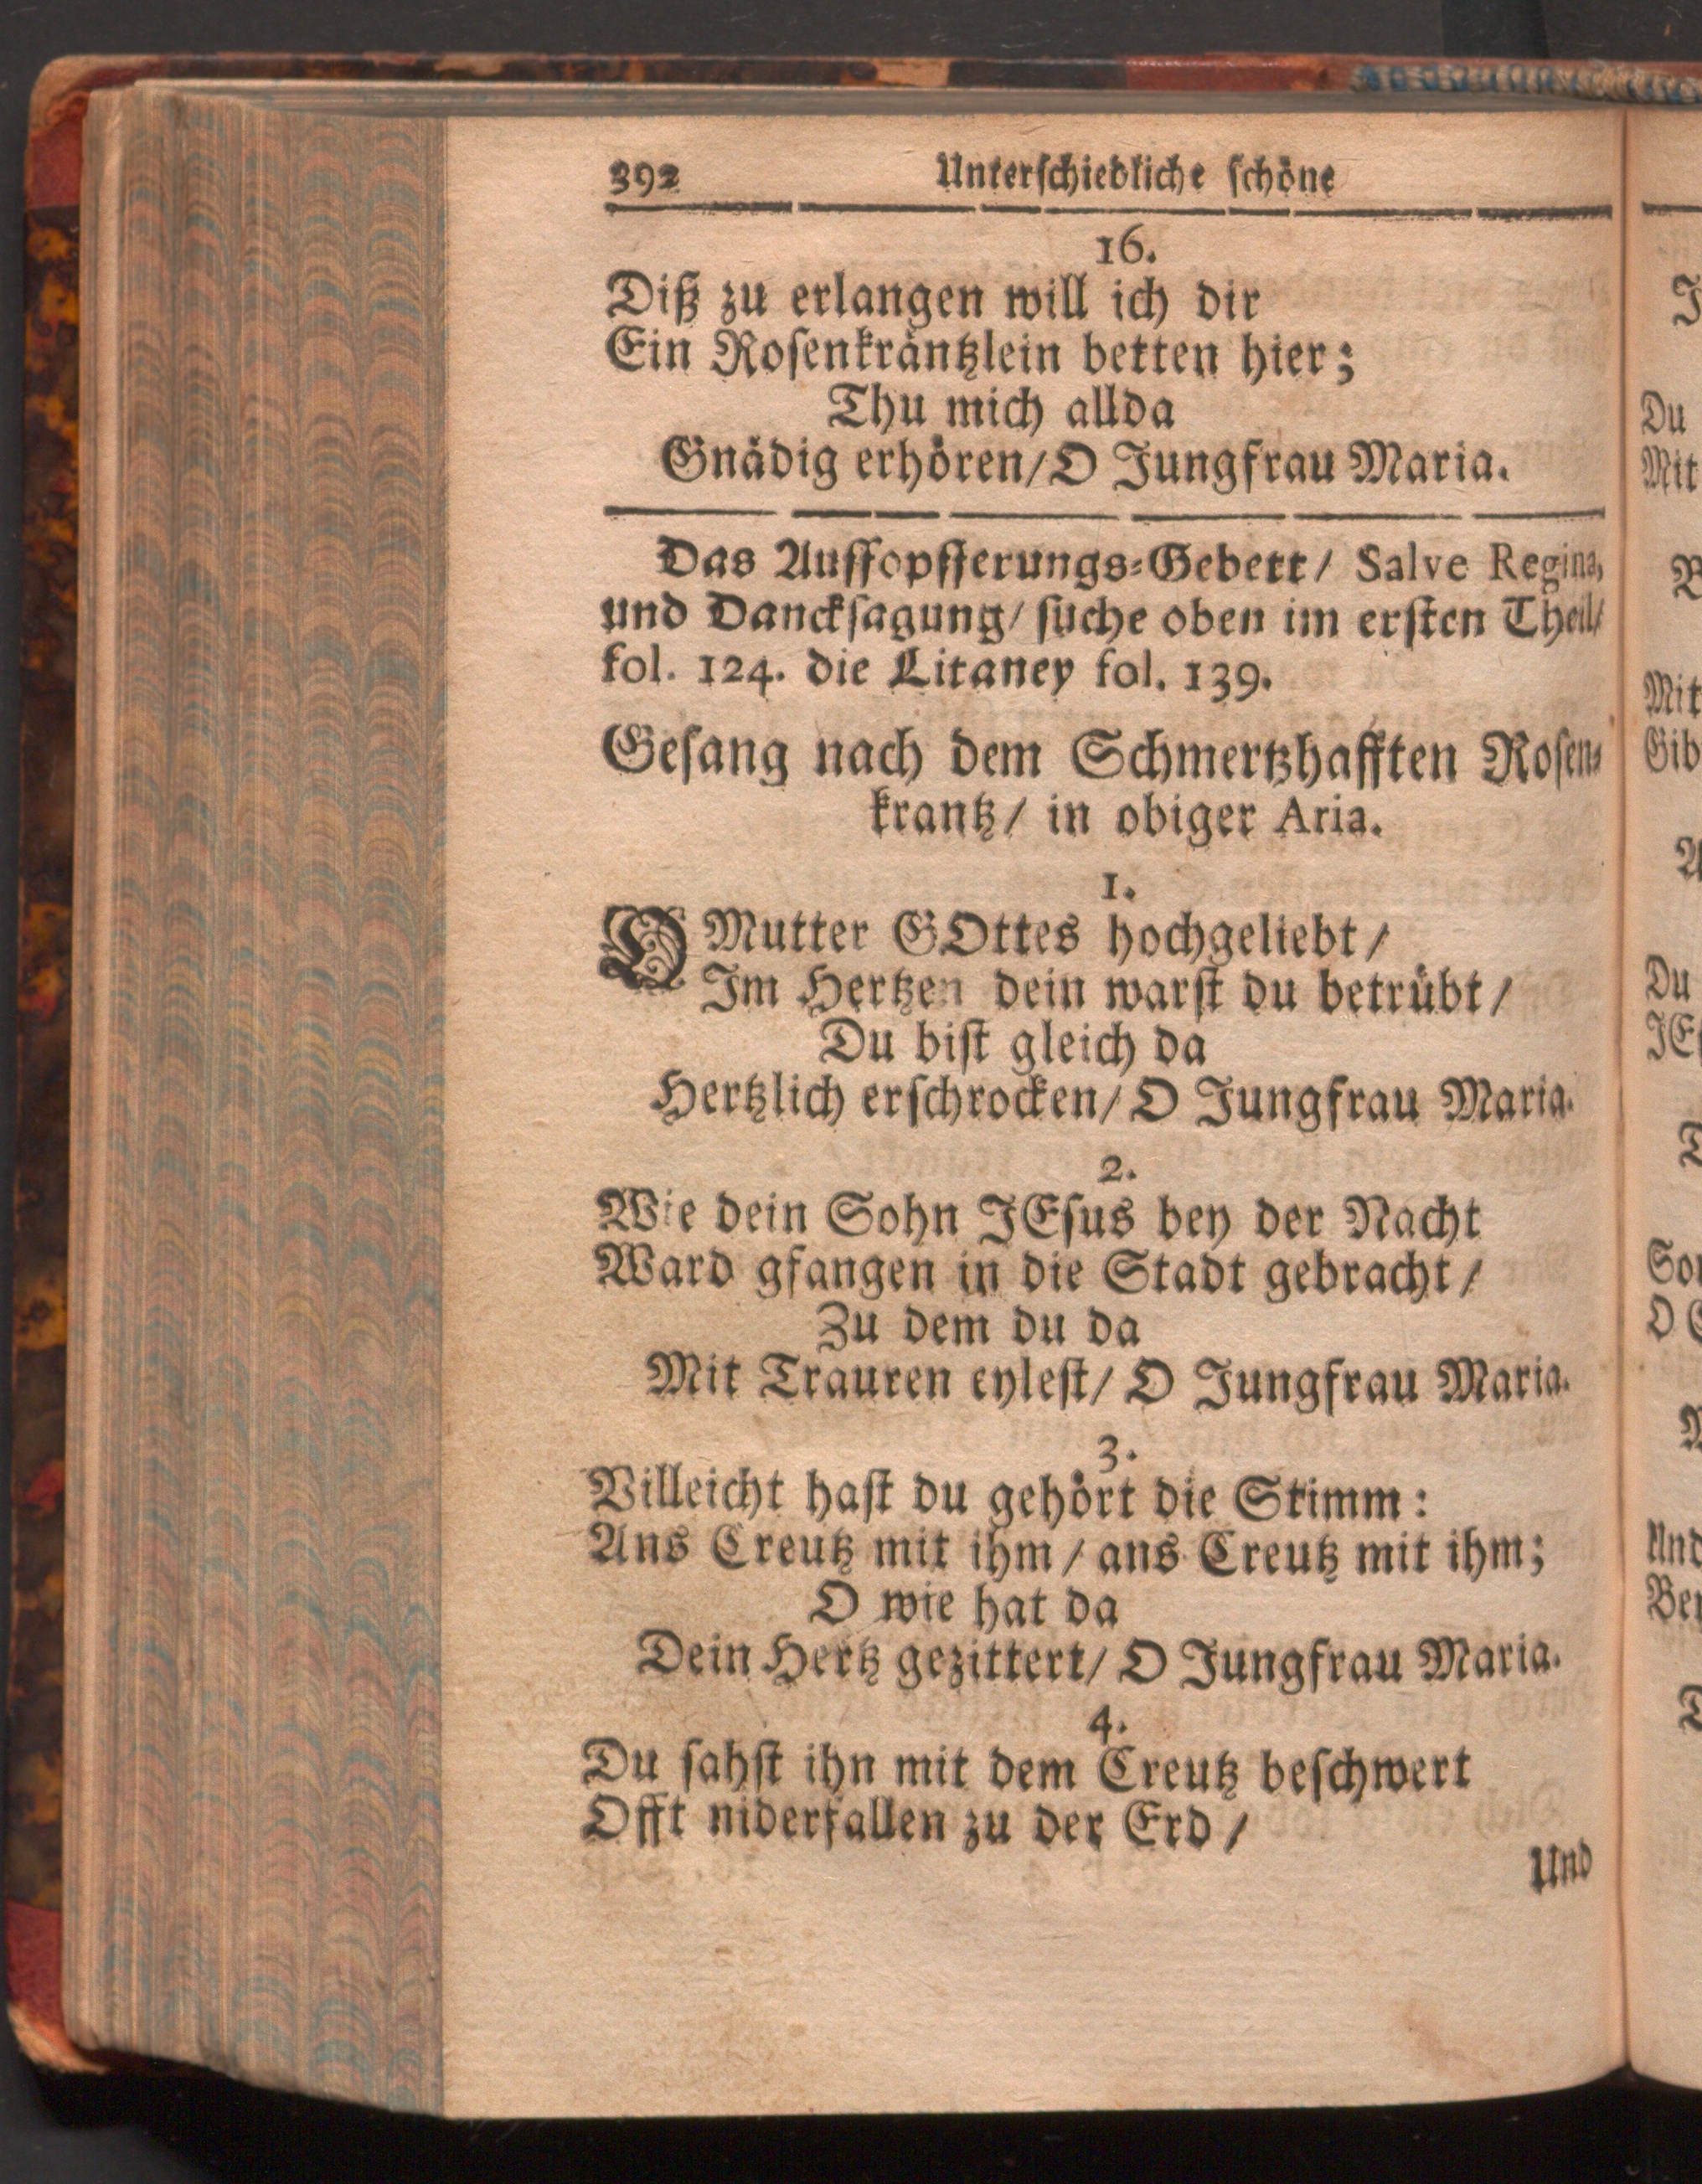 392 Unterschiedliche schöne
16.
Diß zu erlangen will ich dir
Ein Rosenkräntzlein betten hier;
Thu mich allda
Gnädig erhören/ O Jungfrau Maria.
Das Auffopfferungs-Gebett/ Salve Regina,
und Dancksagung/ suche oben im ersten Theil/
fol. 124. die Litaney fol. 139.
Gesang nach dem Schmertzhafften Rosen-
krantz/ in obiger Aria.
1.
O Mutter GOttes hochgeliebt/
Im Hertzen dein warst du betrübt/
Du bist gleich da
Hertzlich erschrocken/ O Jungfrau Maria.
2.
Wie dein Sohn JEsus bey der Nacht
Ward gfangen in die Stadt gebracht/
Zu dem du da
Mit Trauren eylest/ O Jungfrau Maria.
3.
Villeicht hast du gehört die Stimm:
Ans Creutz mit ihm/ ans Creutz mit ihm;
O wie hat da
Dein Hertz gezittert/ O Jungfrau Maria.
4.
Du sahst ihn mit dem Creutz beschwert
Offt niderfallen zu der Erd/
Und
Du
Mit
Mit
Gib
Du